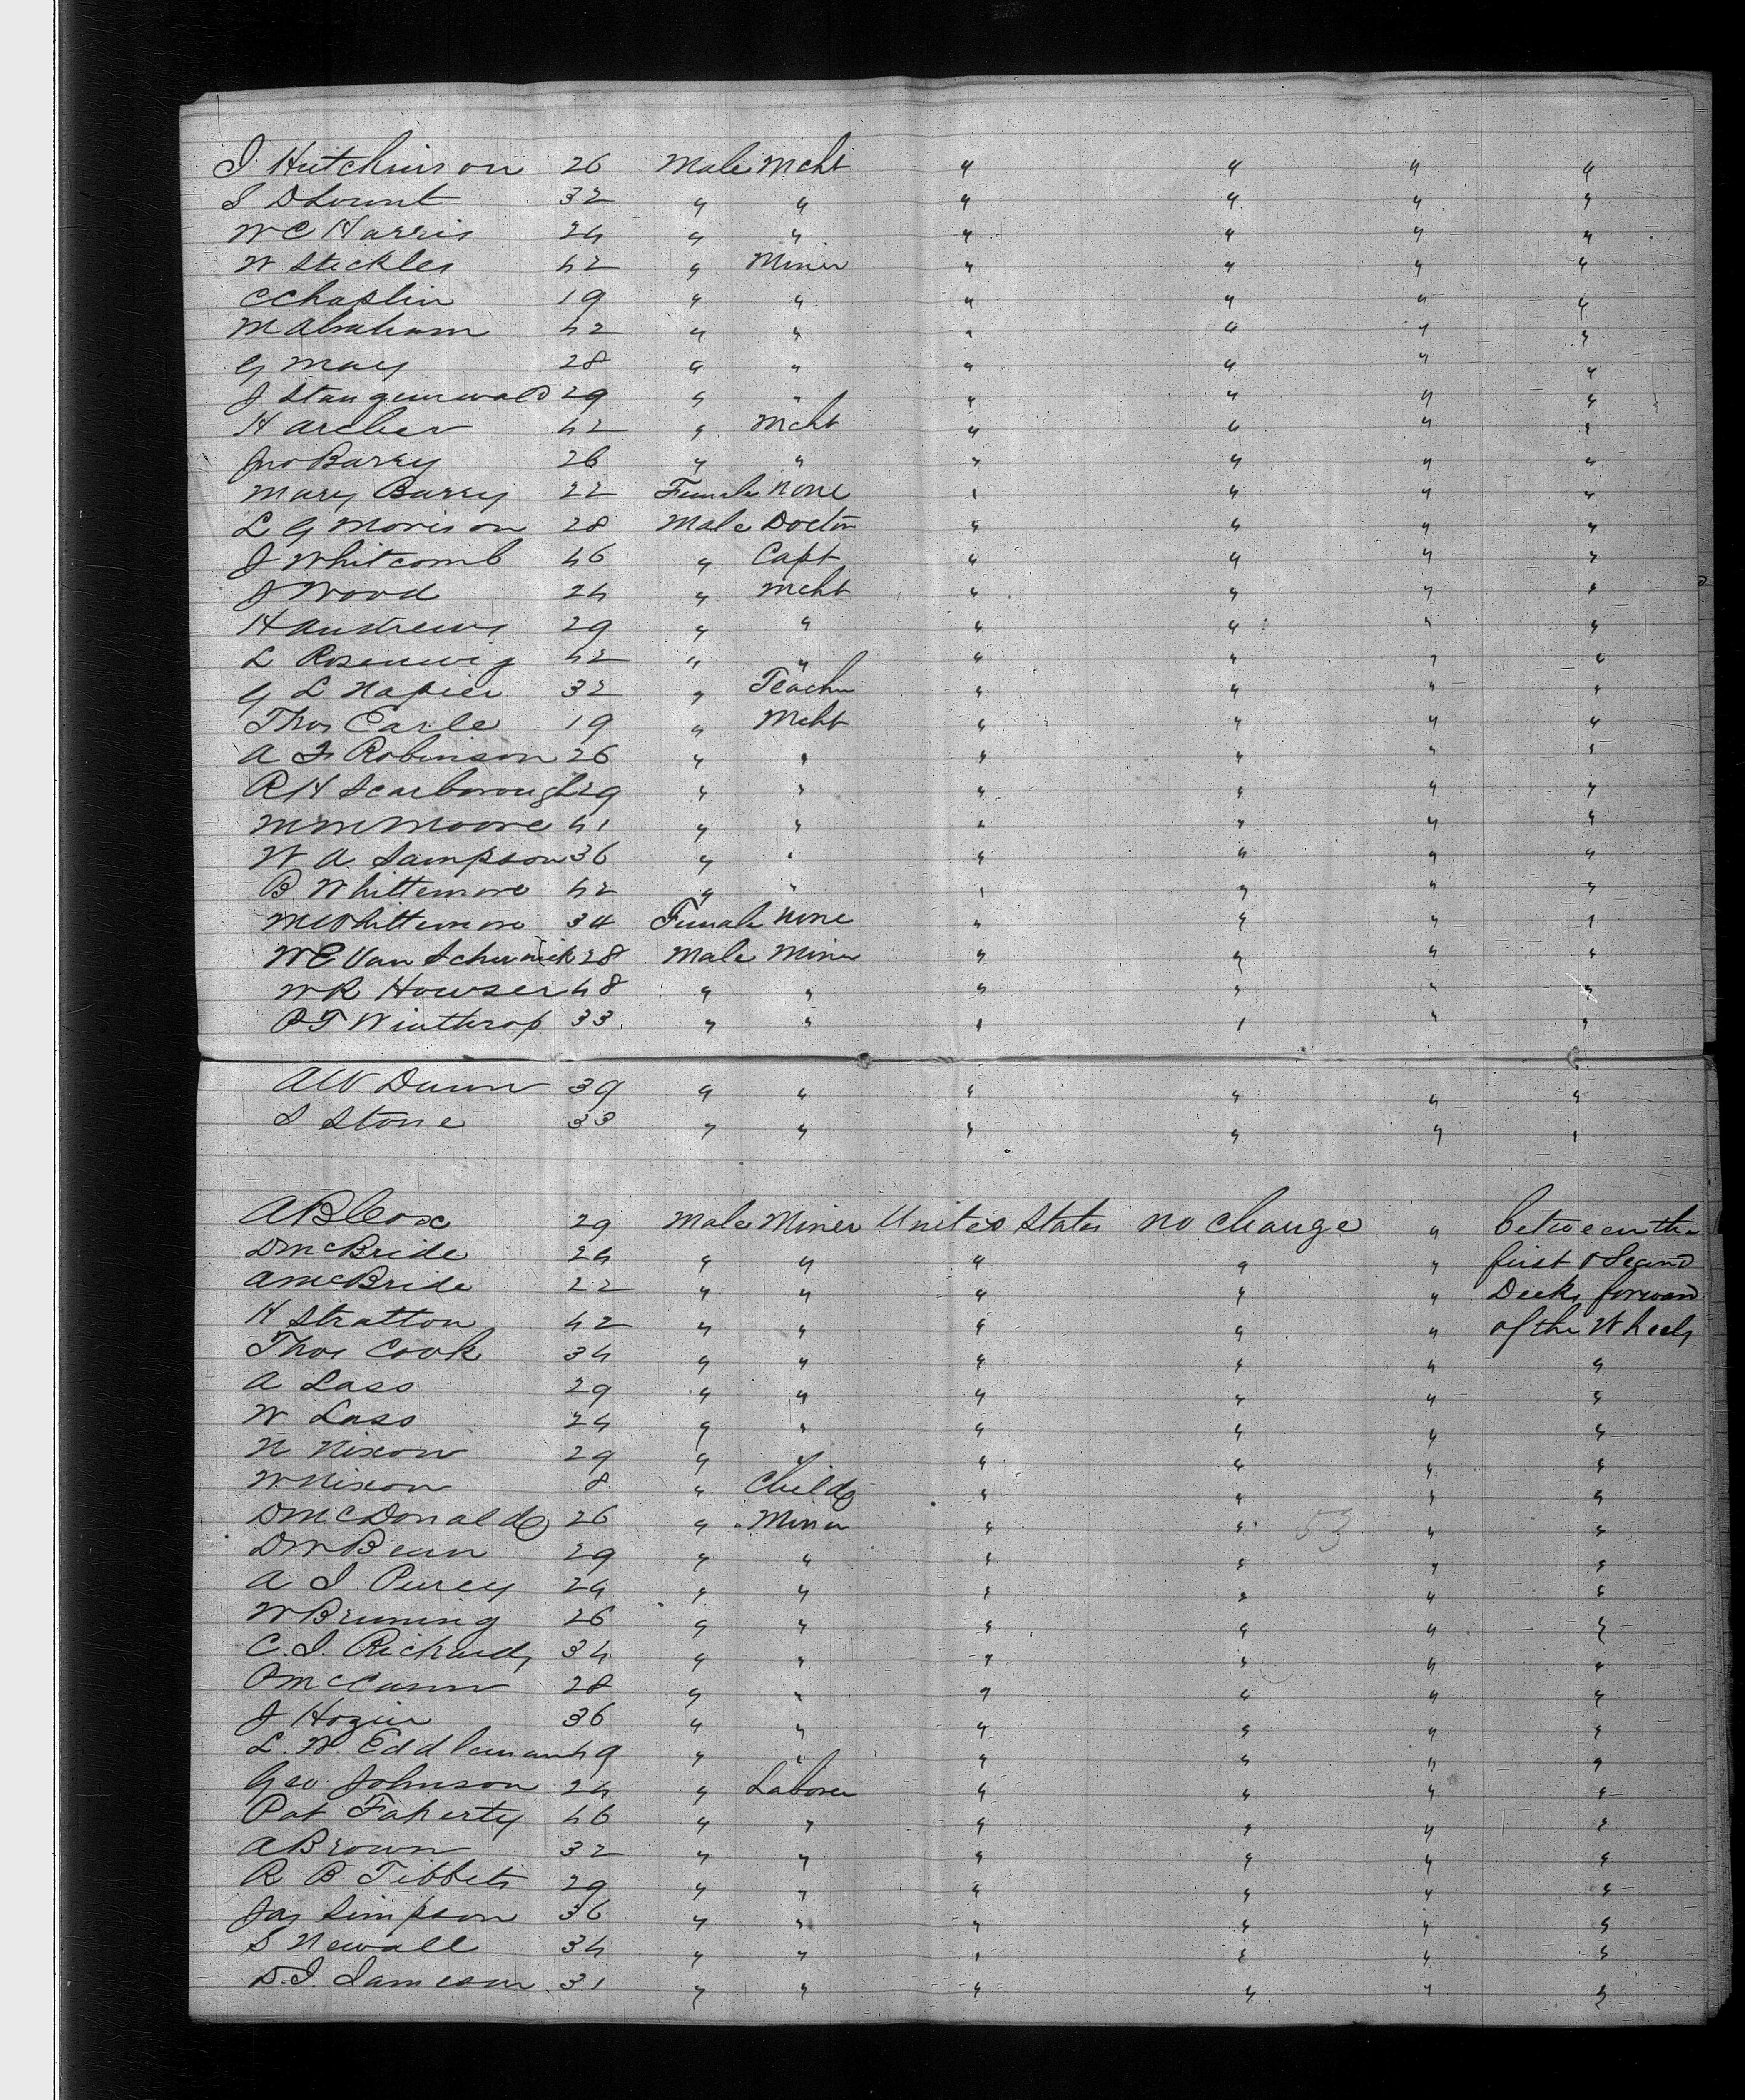 J. Hutchinson 26 Male Mcht " " " "
S D Lount 32 " " " " " "
W C Harris 24 " " " " " "
W Stickles 42 " Miner " " " "
C Chaplin 19 " " " " " "
M Abraham 42 " " " " " "
G May 28 " " " " " "
J Staugenwald 29 " " " " " "
H Archer 42 " Mcht " " " "
Jno Barry 26 " " " " " "
Mary Barry 22 Female None " " " "
L G Morison 28 Male Doctor " " " "
J Whitcomb 46 " Capt " " " "
J Wood 24 " Mcht " " " "
H Andrews 29 " " " " " "
L Rosenwig 42 " " " " " "
G L Napier 32 " Teacher " " " "
Thos Earle 19 " Mcht " " " "
A F Robinson 26 " " " " " "
R H Scarborough 29 " " " " " "
M M Moore 41 " " " " " "
W A Sampson 36 " " " " " "
B Whittemore 42 " " " " " "
M Whittemore 34 Female None " " " "
W E Van Scherwick 28 Male Miner " " " "
W R Howser 48 " " " " " "
P T Winthrop 33 " " " " " "
A W Dunn 39 " " " " " "
S Stone 33 " " " " " "
A B Cox 29 Male Miner United States no change " between the
D McBride 24 " " " " " first & Second
A McBride 22 " " " " " Decks forward
H Stratton 42 " " " " " of the Wheels
Thos Cook 34 " " " " " "
A Lass 29 " " " " " "
W Lass 24 " " " " " "
N Nixon 29 " " " " " "
W Nixon 8 " Child " " " "
D McDonald 26 " Miner " " 53 " "
D W Bean 29 " " " " " "
A J Purcy 24 " " " " " "
W Bruning 26 " " " " " "
C. J. Richards 34 " " " " " "
P McCann 28 " " " " " "
J Hozier 36 " " " " " "
L. W. Eddleman 49 " " " " " "
Geo Johnson 24 " Laborer " " " "
Pat Faherty 46 " " " " " "
A Brown 32 " " " " " "
R B Tibbets 29 " " " " " "
Jas Simpson 36 " " " " " "
S Newall 34 " " " " " "
D. J. Jameson 31 " " " " " "